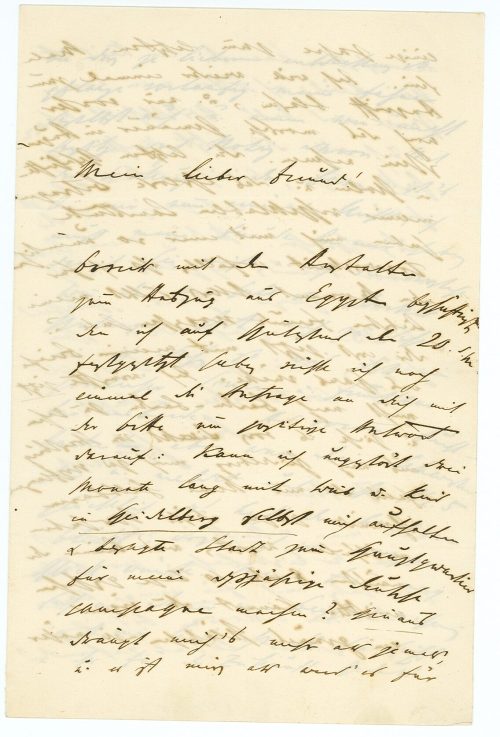 Mein lieber Freund!
Bereits mit den Anstalten
zum Abzug aus Egypten beschäftigt,
den ich auf spätestens den 20. d. M.
festgesetzt habe, richte ich noch
einmal die Anfrage an Dich mit
der Bitte um sofortige Antwort
darauf: Kann ich ungestört drei
Monate lang mit Weib u. Kind
in Heidelberg selbst mich aufhalten
& besagte Stadt zum Hauptquartier
für meine dießjährige
campagne machen? Hinaus
drängt mich's mehr als jemals,
u. es ist mir als wend' es für